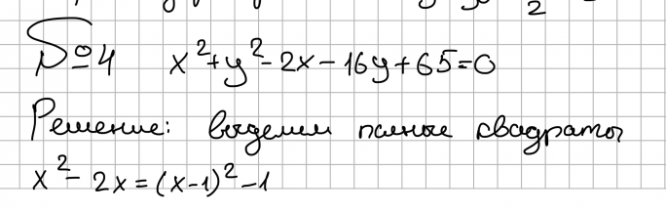 2
№4 x²+y²-2x-16y+65=0
Решение: выделим полные квадраты
x²-2x=(x-1)²-1